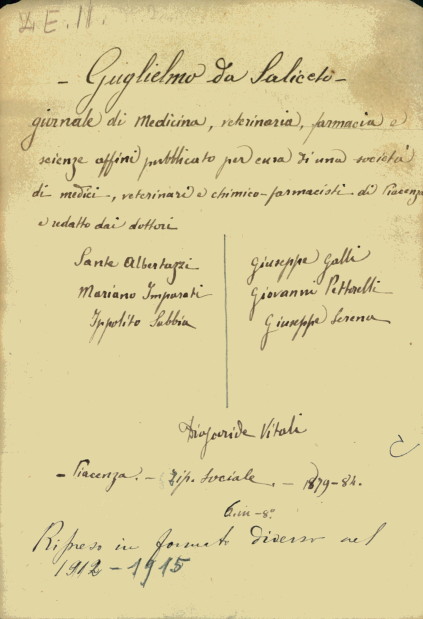 Z.E.11.
- Guglielmo da Saliceto -
giornale di Medicina, veterinaria, farmacia e
scienze affini pubblicato per cura di una società
di medici, veterinari e chimico-farmacisti di Piacenza
e redatto dai dottori
Sante Albertazzi
Mariano Imparati
Ippolito Subbia
Giuseppe Galli
Giovanni Pettorelli
Giuseppe Serena
Dioscoride Vitali
- Piacenza. - Tip. sociale. - 1879-84.
6. in-8°
Ripreso in formato diverso nel
1912 - 1915